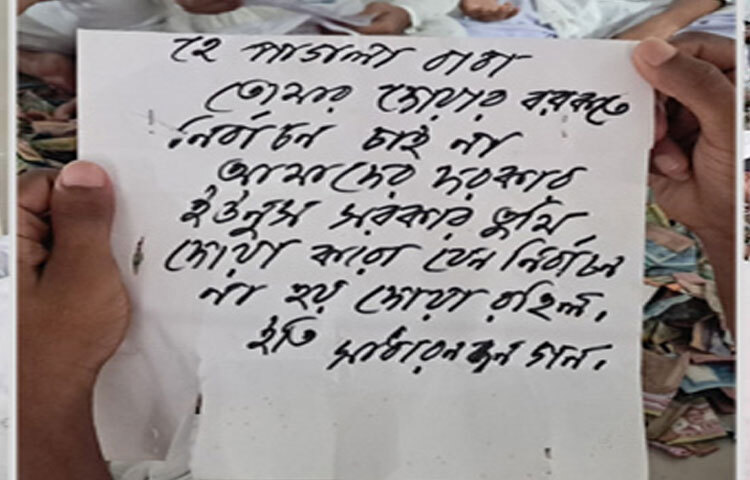 হে পাগলা বাবা
তোমার দোয়ার বরকতে
নির্বাচন চাই না
আমাদের দরকার
ইউনুস সরকার তুমি
দোয়া করো যেন নির্বাচন
না হয় দোয়া রহিল.
ইতি সাধারন জন গন.